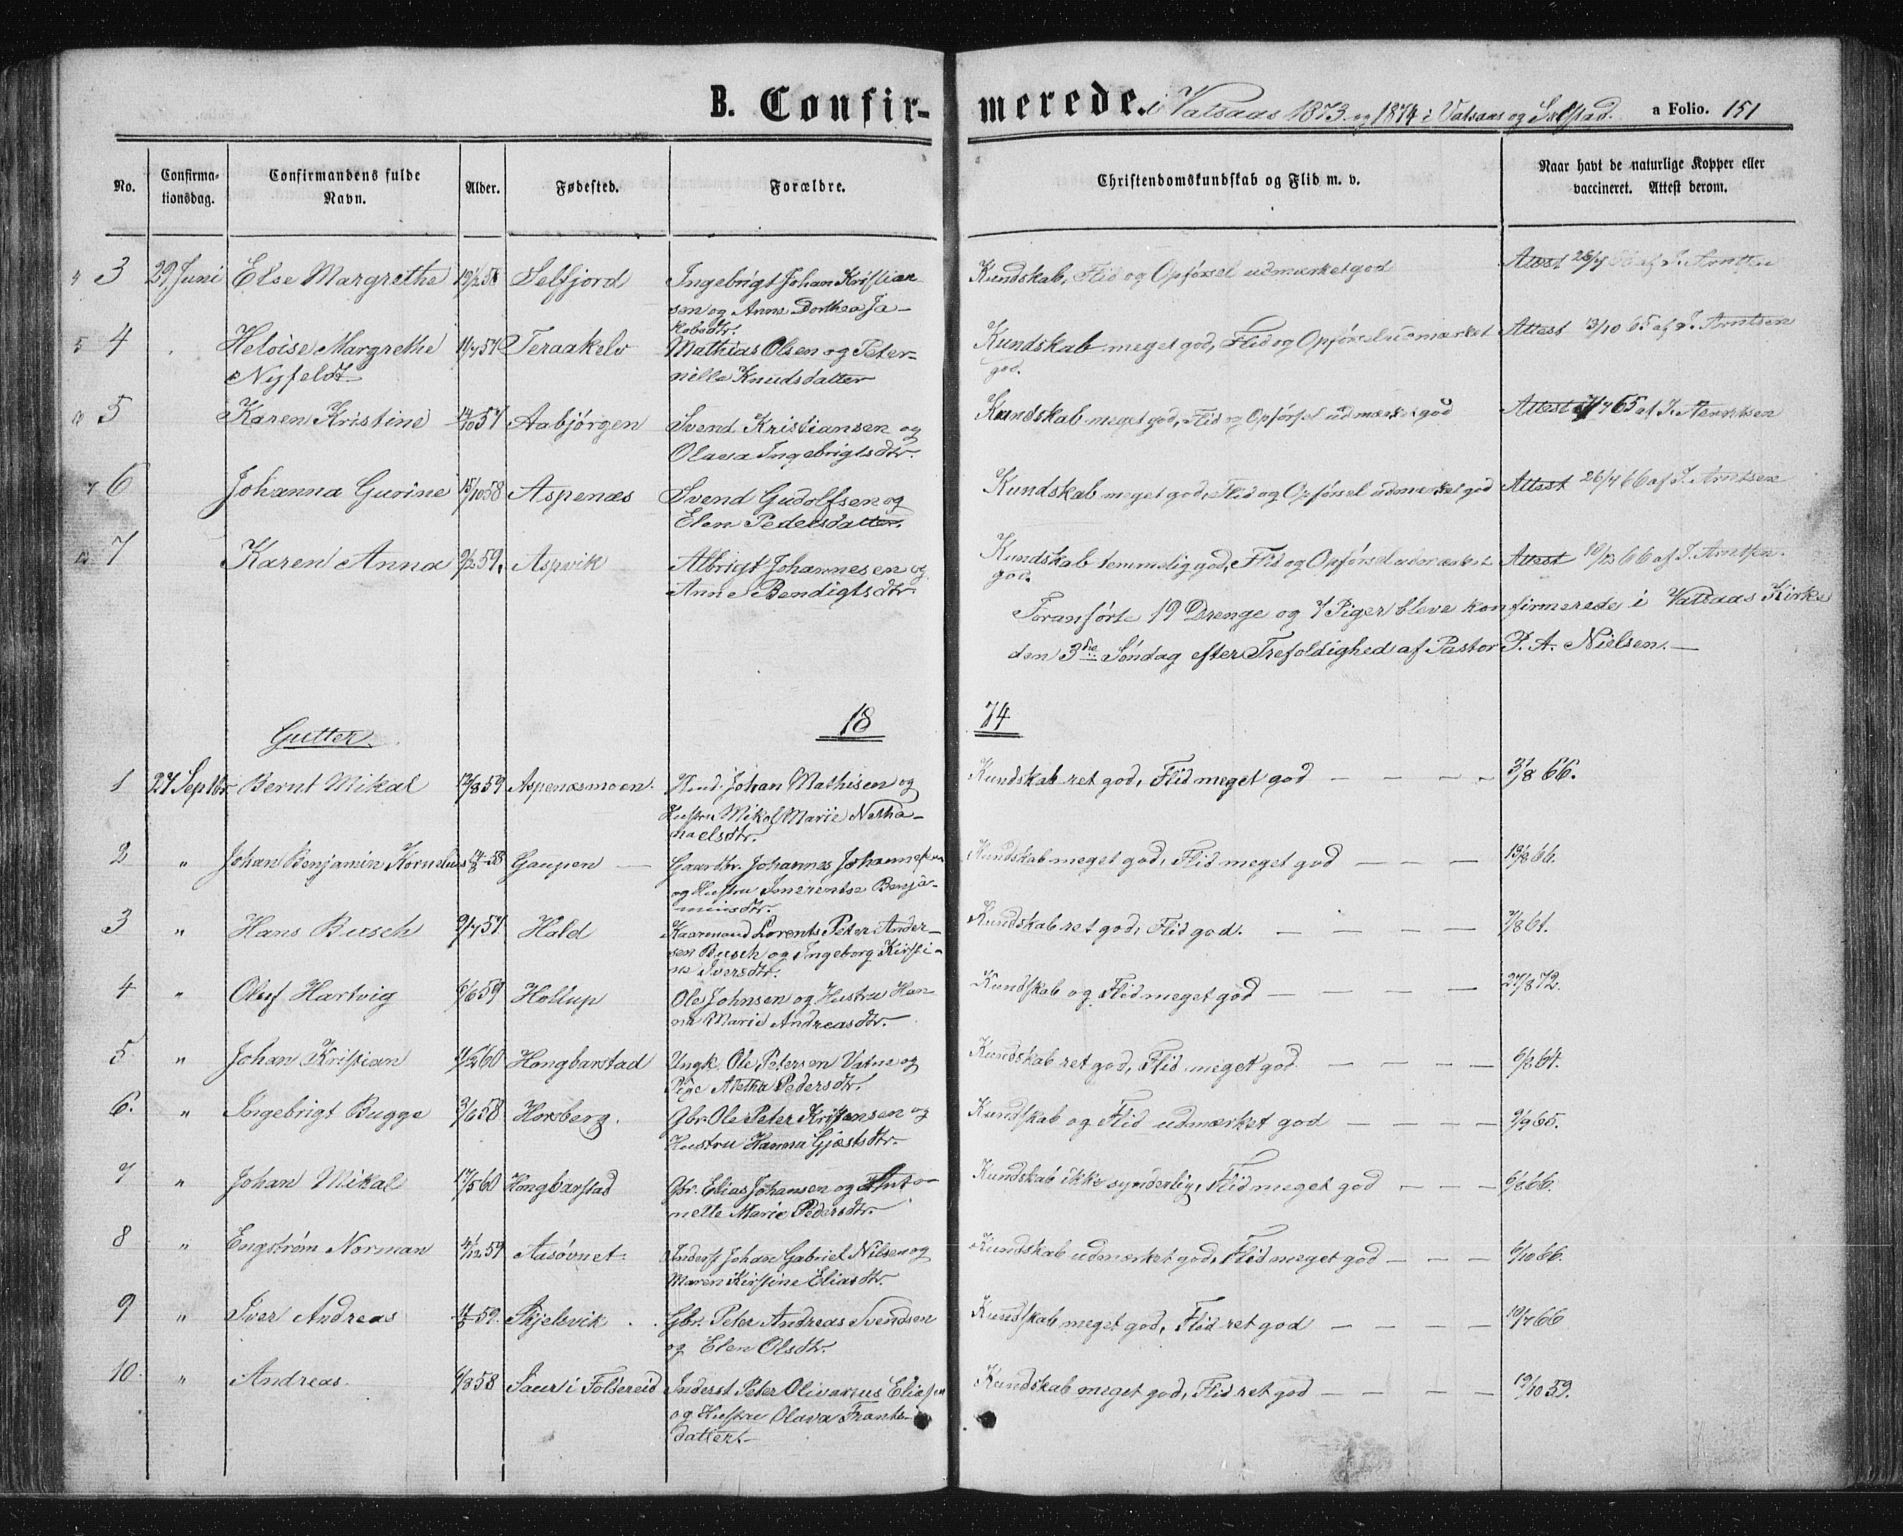 B. Confirmerede. i Vatsaas 1873 og 1874 i Vatsaas og Solstad. a Folio. 151
No. Confirmationsdag. Confirmandens fulde Navn. Alder. Fødested. Forældre. Christendomskundskab og Flid m. v. Naar havt de naturlige Kopper eller vaccineret. Attest derom.
3 29 Juni Else Margrethe 19/2 58 Selfjord Ingebrigt Johan Kristian- Kundskab, Flid og Opførsel udmærket god Attest af J. Arntsen
sen og Anne Dorthea Ja-
kobsdtr.
4 Heloise Margrethe 11/4 57 Teraakelv Mathias Olsen og Peter- Kundskab meget god, Flid og Opførsel udmærket Attest 13/10 65 af J. Arntsen
Nyfeldt nille Knudsdatter god.
5 Karen Kristine 57 Aabjørgen Svend Kristiansen og Kundskab meget god, Flid og Opførsel udmærket god Attest 65 af J. Arntsen
Olava Ingebrigtsdtr.
6 Johanna Gurine 15/10 58 Aspenæs Svend Gudolfsen og Kundskab meget god, Flid og Opførsel udmærket god Attest 26/7 66 af J. Arntsen
Elen Pedersdatter.
7 Karen Anna 9/2 59. Aspvik Albrigt Johannesen og Kundskab temmelig god, Flid og Opførsel udmærket Attest 66 af J. Arntsen.
Anne Bendigtsdtr. god.
Foranførte 19 Drenge og 7 Piger bleve konfirmerede i Vatsaas Kirke
den 3die Søndag efter Trefoldighed af Pastor P. A. Nielsen. —
Gutter. 18 74
1 27 Septbr Bernt Mikal 13/8 59 Aspenæsmoen. Huusmd. Johan Mathisen og Kundskab ret god, Flid meget god — — — 31/8 66.
Hustru Mikal Marie Natha-
naelsdtr.
2 " Johan Benjamin Kornelius 58 Gaupen — Gaardbr. Johannes Johannesen Kundskab meget god, Flid meget god — — — 13/8 66.
og Hustru Imerentse Benja-
minsdtr.
3 " Hans Busch 9/7 57 Hald Kaaremand Lorents Peter Ander- Kundskab ret god, Flid god. — — — — 7/8 61.
sen Busch og Ingeborg Kirsti-
ne Iversdtr.
4 " Oluf Hartvig 5/6 59 Hollup Ole Johnsen og Hustru Han- Kundskab og Flid meget god — — — — 27/8 72.
na Marie Andreasdtr.
5 " Johan Kristian 60 Hongbarstad Ungk. Ole Petersen Vatne og Kundskab ret god, Flid meget god — — — 6/8 64.
Pige Aletha Pedersdtr.
6. " Ingebrigt Bugge 3/6 58 Horsberg. Gbr. Ole Peter Kristensen og Kundskab og Flid udmærket god — — — 9/9 65.
Hustru Hanna Gjæstsdtr.
7 " Johan Mikal 17/5 60 Hongbarstad Gbr. Elias Johansen og Anto- Kundskab ikke synderlig, Flid meget god — — — 6/8 66.
nette Marie Pedersdtr.
8 " Engstrøm Norman 4/12 59 Aasøvnet. Inderst Johan Gabriel Nilsen og Kundskab udmærket god, Flid meget god — — — 6/10 66.
Maren Kirstine Eliasdtr.
9 " Iver Andreas 59. Skjelevik Gbr. Peter Andreas Svendsen Kundskab meget god, Flid ret god — — — — 10/7 66
og Elen Olsdtr.
10. " Andreas 6/8 58 Saur i Foldereid Inderst Peter Olivarius Eliasen Kundskab meget god, Flid ret god — — — — 19/10 59.
og Hustru Olava Frants-
datter. —